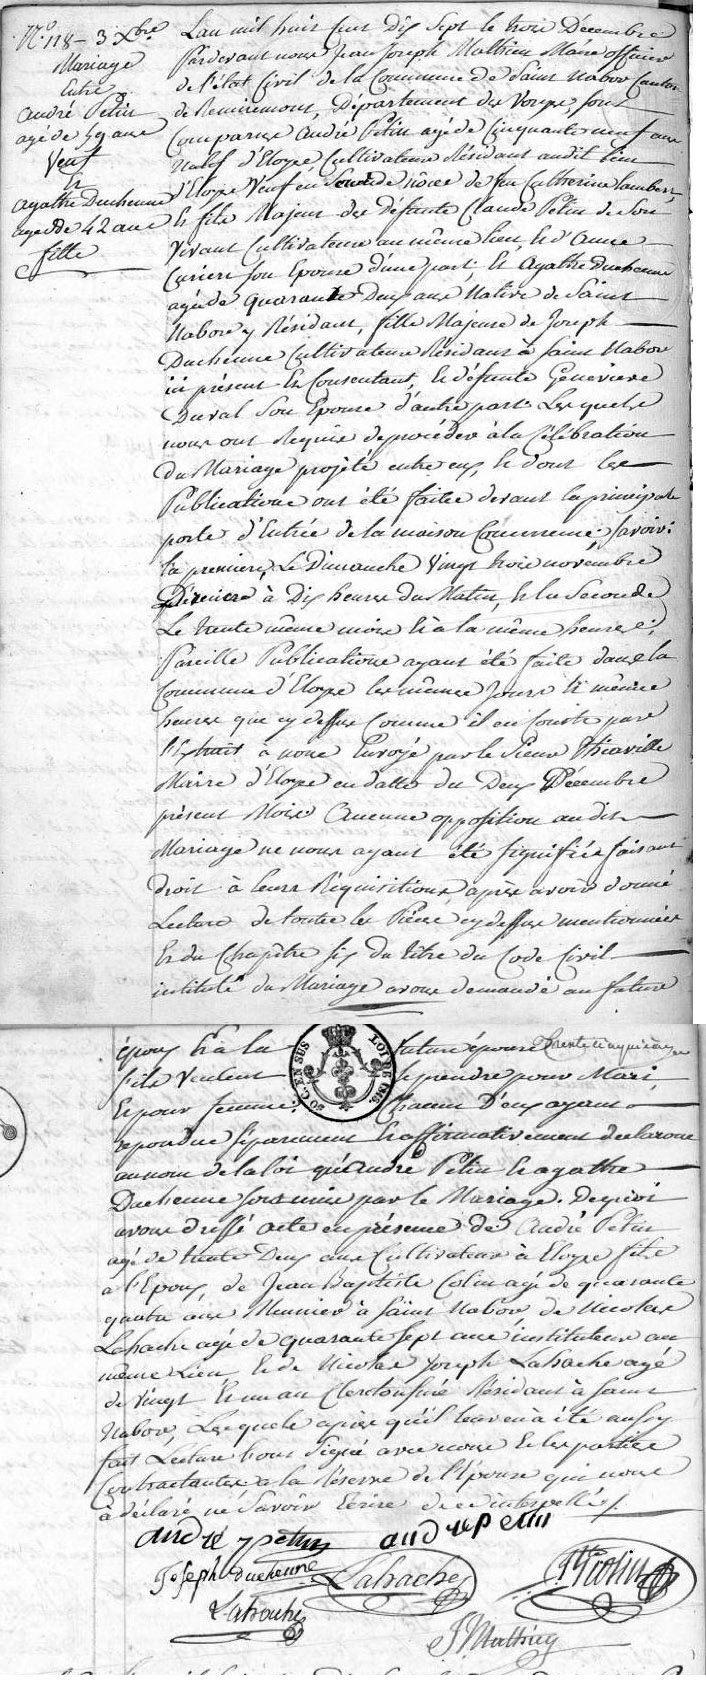 N.° 118 - 3 Xbre
Mariage
Entre
André Petin
agé de 59 ans
Veuf
Et
Agathe Duchenne
agée de 42 ans
fille
L'an mil huit Cent Dix Sept le trois Décembre
Pardevant nous Jean Joseph Mathieu Maire officier
de l'état Civil de la Commune de Saint Nabor Canton
de Remiremont, Département des Vosges, sont
Comparus André Petin agé de Cinquante neuf ans
Natif d'Eloyes Cultivateur Résidant audit lieu
d'Eloyes Veuf en noces de feu Catherine Lambert,
et fils Majeur des défunts Claude Petin de Son
Vivant Cultivateur au même lieu, et d'Anne
Curien son Epouse d'une part; Et Agathe Duchenne
agée de quarante Deux ans Native de Saint
Nabor y Résidant, fille Majeure de Joseph
Duchenne Cultivateur Résidant à Saint Nabor
ici présent Et Consentant, et défunte Genevieve
Duval Son Epouse d'autre part. Lesquels
nous ont Requis de procéder à la Célébration
du Mariage projeté entre eux, et dont les
Publications ont été faites devant la principale
porte d'Entrée de la maison Commune; Savoir:
la premiere, Le Dimanche Vingt trois novembre
Derniere à Dix heures du Matin, et la Seconde
Le trente même mois et à la même heure;
Pareille Publications ayant été faite dans la
Commune d'Eloyes les mêmes Jours et mêmes
heures que cy dessus Comme il en Conste par
l'Extrait à nous Envoyé par le Sieur Thiaville
Maire d'Eloyes en datte du Deux Décembre
présent Mois. Aucune opposition audit
Mariage ne nous ayant été signifiée faisant
droit à leurs Réquisitions, après avoir donné
Lecture de toutes les Pièces cy dessus mentionnées
Et du Chapitre six du titre du Code Civil
intitulé du Mariage avons demandé au future
époux et à la future épouse
s'ils Veulent se prendre pour Mari,
Et pour femme; Chacun D'eux ayant
repondue séparement et affirmativement declarons
au nom de la loi qu'André Petin et agathe
Duchenne sont unis par le Mariage. De quoi
avons dressé acte en présence de André Petin
agé de trente Deux ans Cultivateur à Eloyes fils
a l'Epoux, de Jean Baptiste Colin agé de quarante
quatre ans Meunier à Saint Nabor de Nicolas
Lahache agé de quarante sept ans instituteur au
même Lieu Et de Nicolas Joseph Lahache agé
de Vingt Et un an Résidant à Saint
Nabor, Lesquels après qu'il leur en à été aussy
fait Lecture l'ont Signé avec nous Et les parties
Contractantes a la Réserve de l'Epouse qui nous
à déclaré ne Savoir Ecrire de ce interpellés
SO C. EN SUS
LOI DE 1816.
andré petin andrepetin
Joseph duchenne Lahache JBte Colin
Lahache
J Mathieu